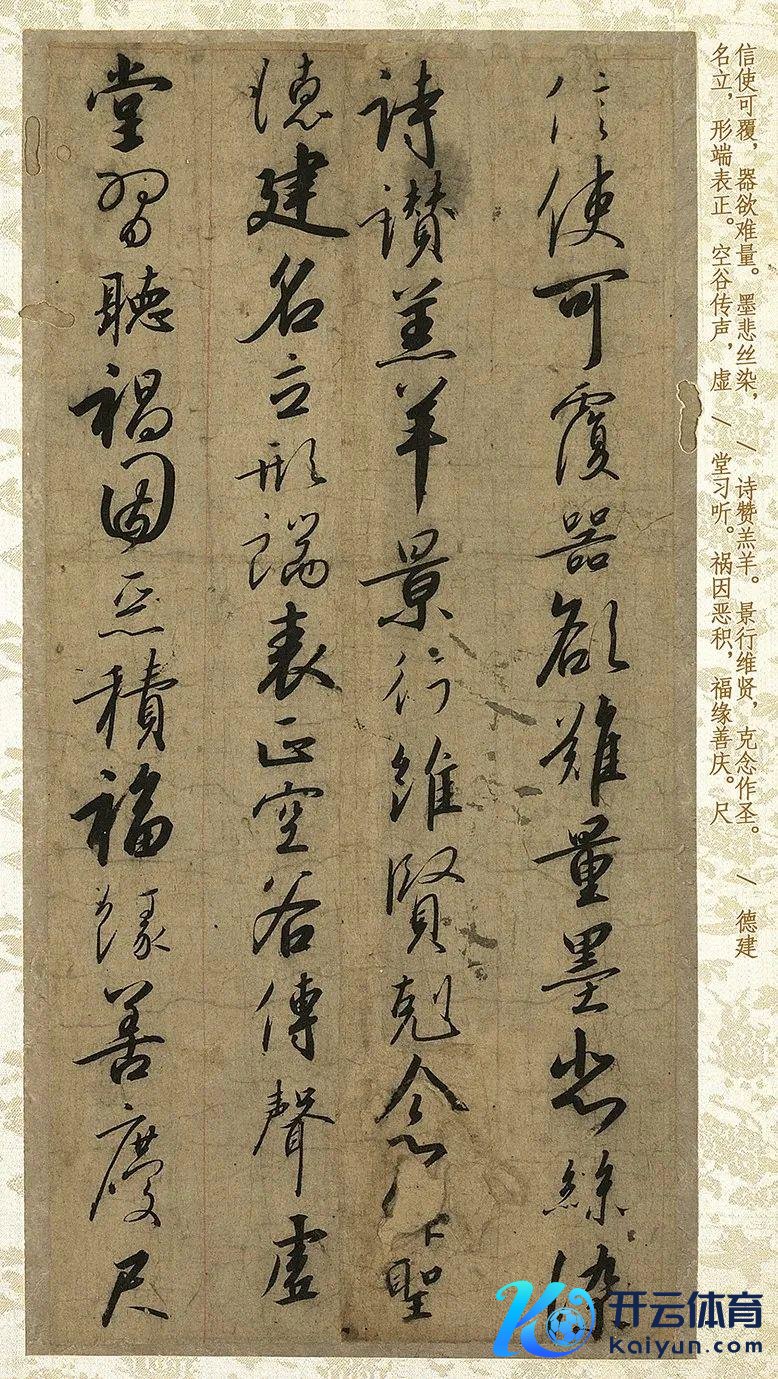 信使可覆器欲難量墨悲絲染
詩讚羔羊景行維賢剋念作聖
德建名立形端表正空谷傳聲虛
堂習聽禍因惡積福緣善慶尺
信使可覆，器欲难量。墨悲丝染，\ 诗赞羔羊。景行维贤，克念作圣。\ 德建
名立，形端表正。空谷传声，虚 \ 堂习听。祸因恶积，福缘善庆。尺
开云体育
Kaiyun.com